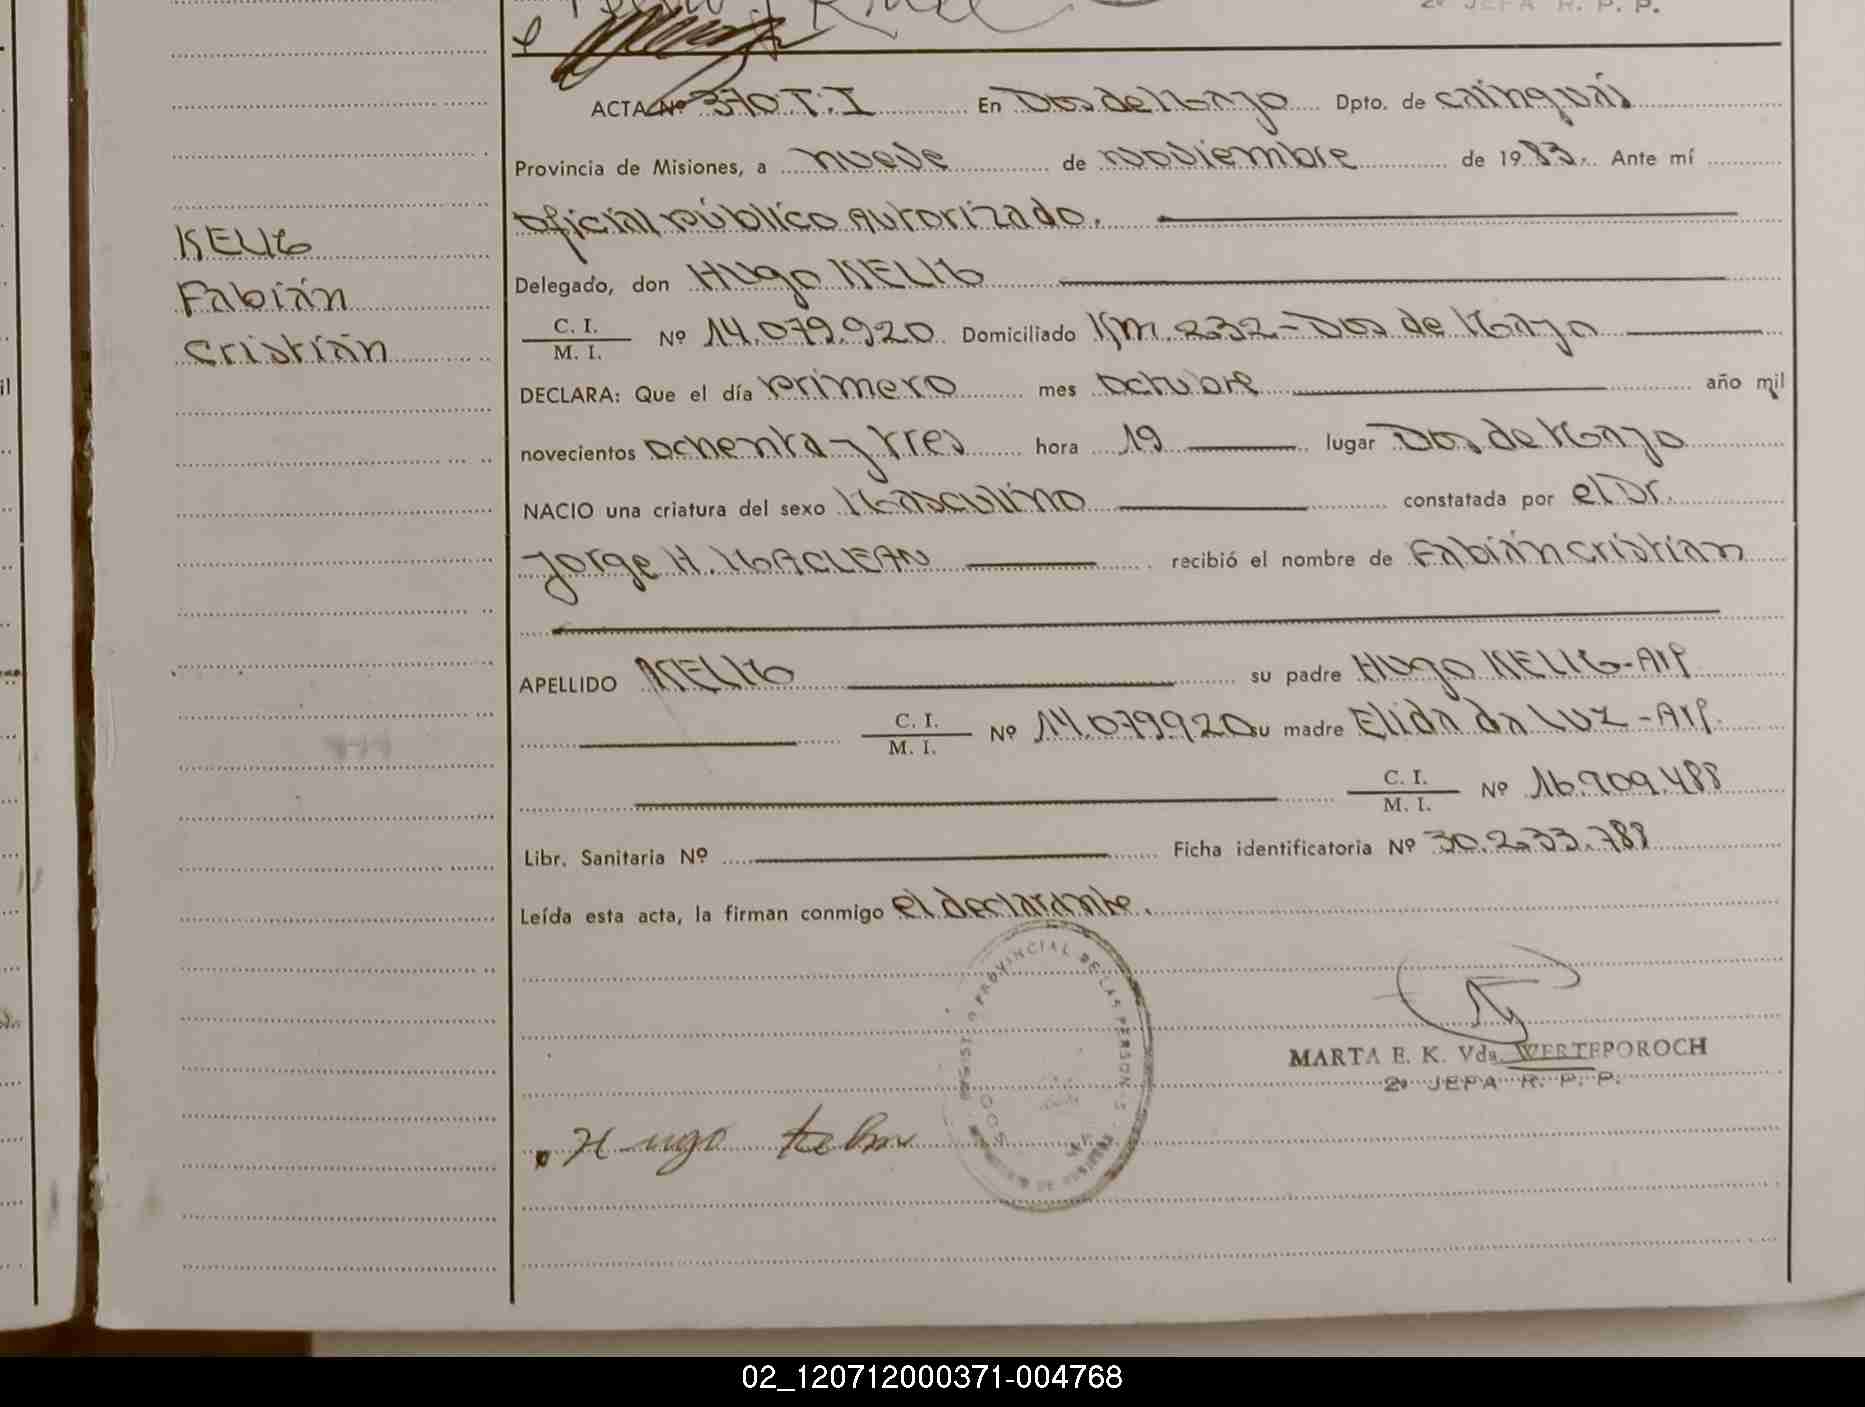 2º JEFA R. P. P.
ACTA Nº 370 T: I En Dos de Mayo Dpto. de Cainguás
Provincia de Misiones, a nueve de noviembre de 1983. Ante mí
oficial público autorizado.
KELM
Delegado, don Hugo KELM
Fabián
C. I.
M. I. Nº 14.079.920 Domiciliado Km. 232 - Dos de Mayo
Cristián
DECLARA: Que el día primero mes octubre año mil
novecientos ochenta y tres hora 19 lugar Dos de Mayo
NACIO una criatura del sexo Masculino constatada por el Dr.
Jorge H. MACLEAN recibió el nombre de Fabián Cristian
APELLIDO KELM su padre Hugo KELM - Arg.
C. I.
M. I. Nº 14.079920 su madre Elida da LUZ - Arg.
C. I.
M. I. Nº 16.709.488
Libr. Sanitaria Nº Ficha identificatoria Nº 30.233.788
Leída esta acta, la firman conmigo el declarante.
REGISTRO PROVINCIAL DE LAS PERSONAS
MARTA E. K. Vda. WERTEPOROCH
2º JEFA R. P. P.
Hugo Kelm
02_120712000371-004768